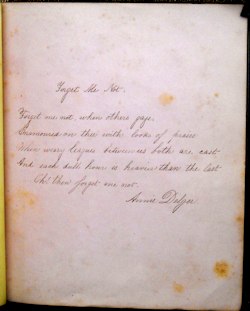 Forget Me Not.
Forget me not, when others gaze
Enamoured on thee with looks of praise
When weary leagues between us both are cast
And each dull hour is heavier than the last
Oh! then forget me not.
Annie